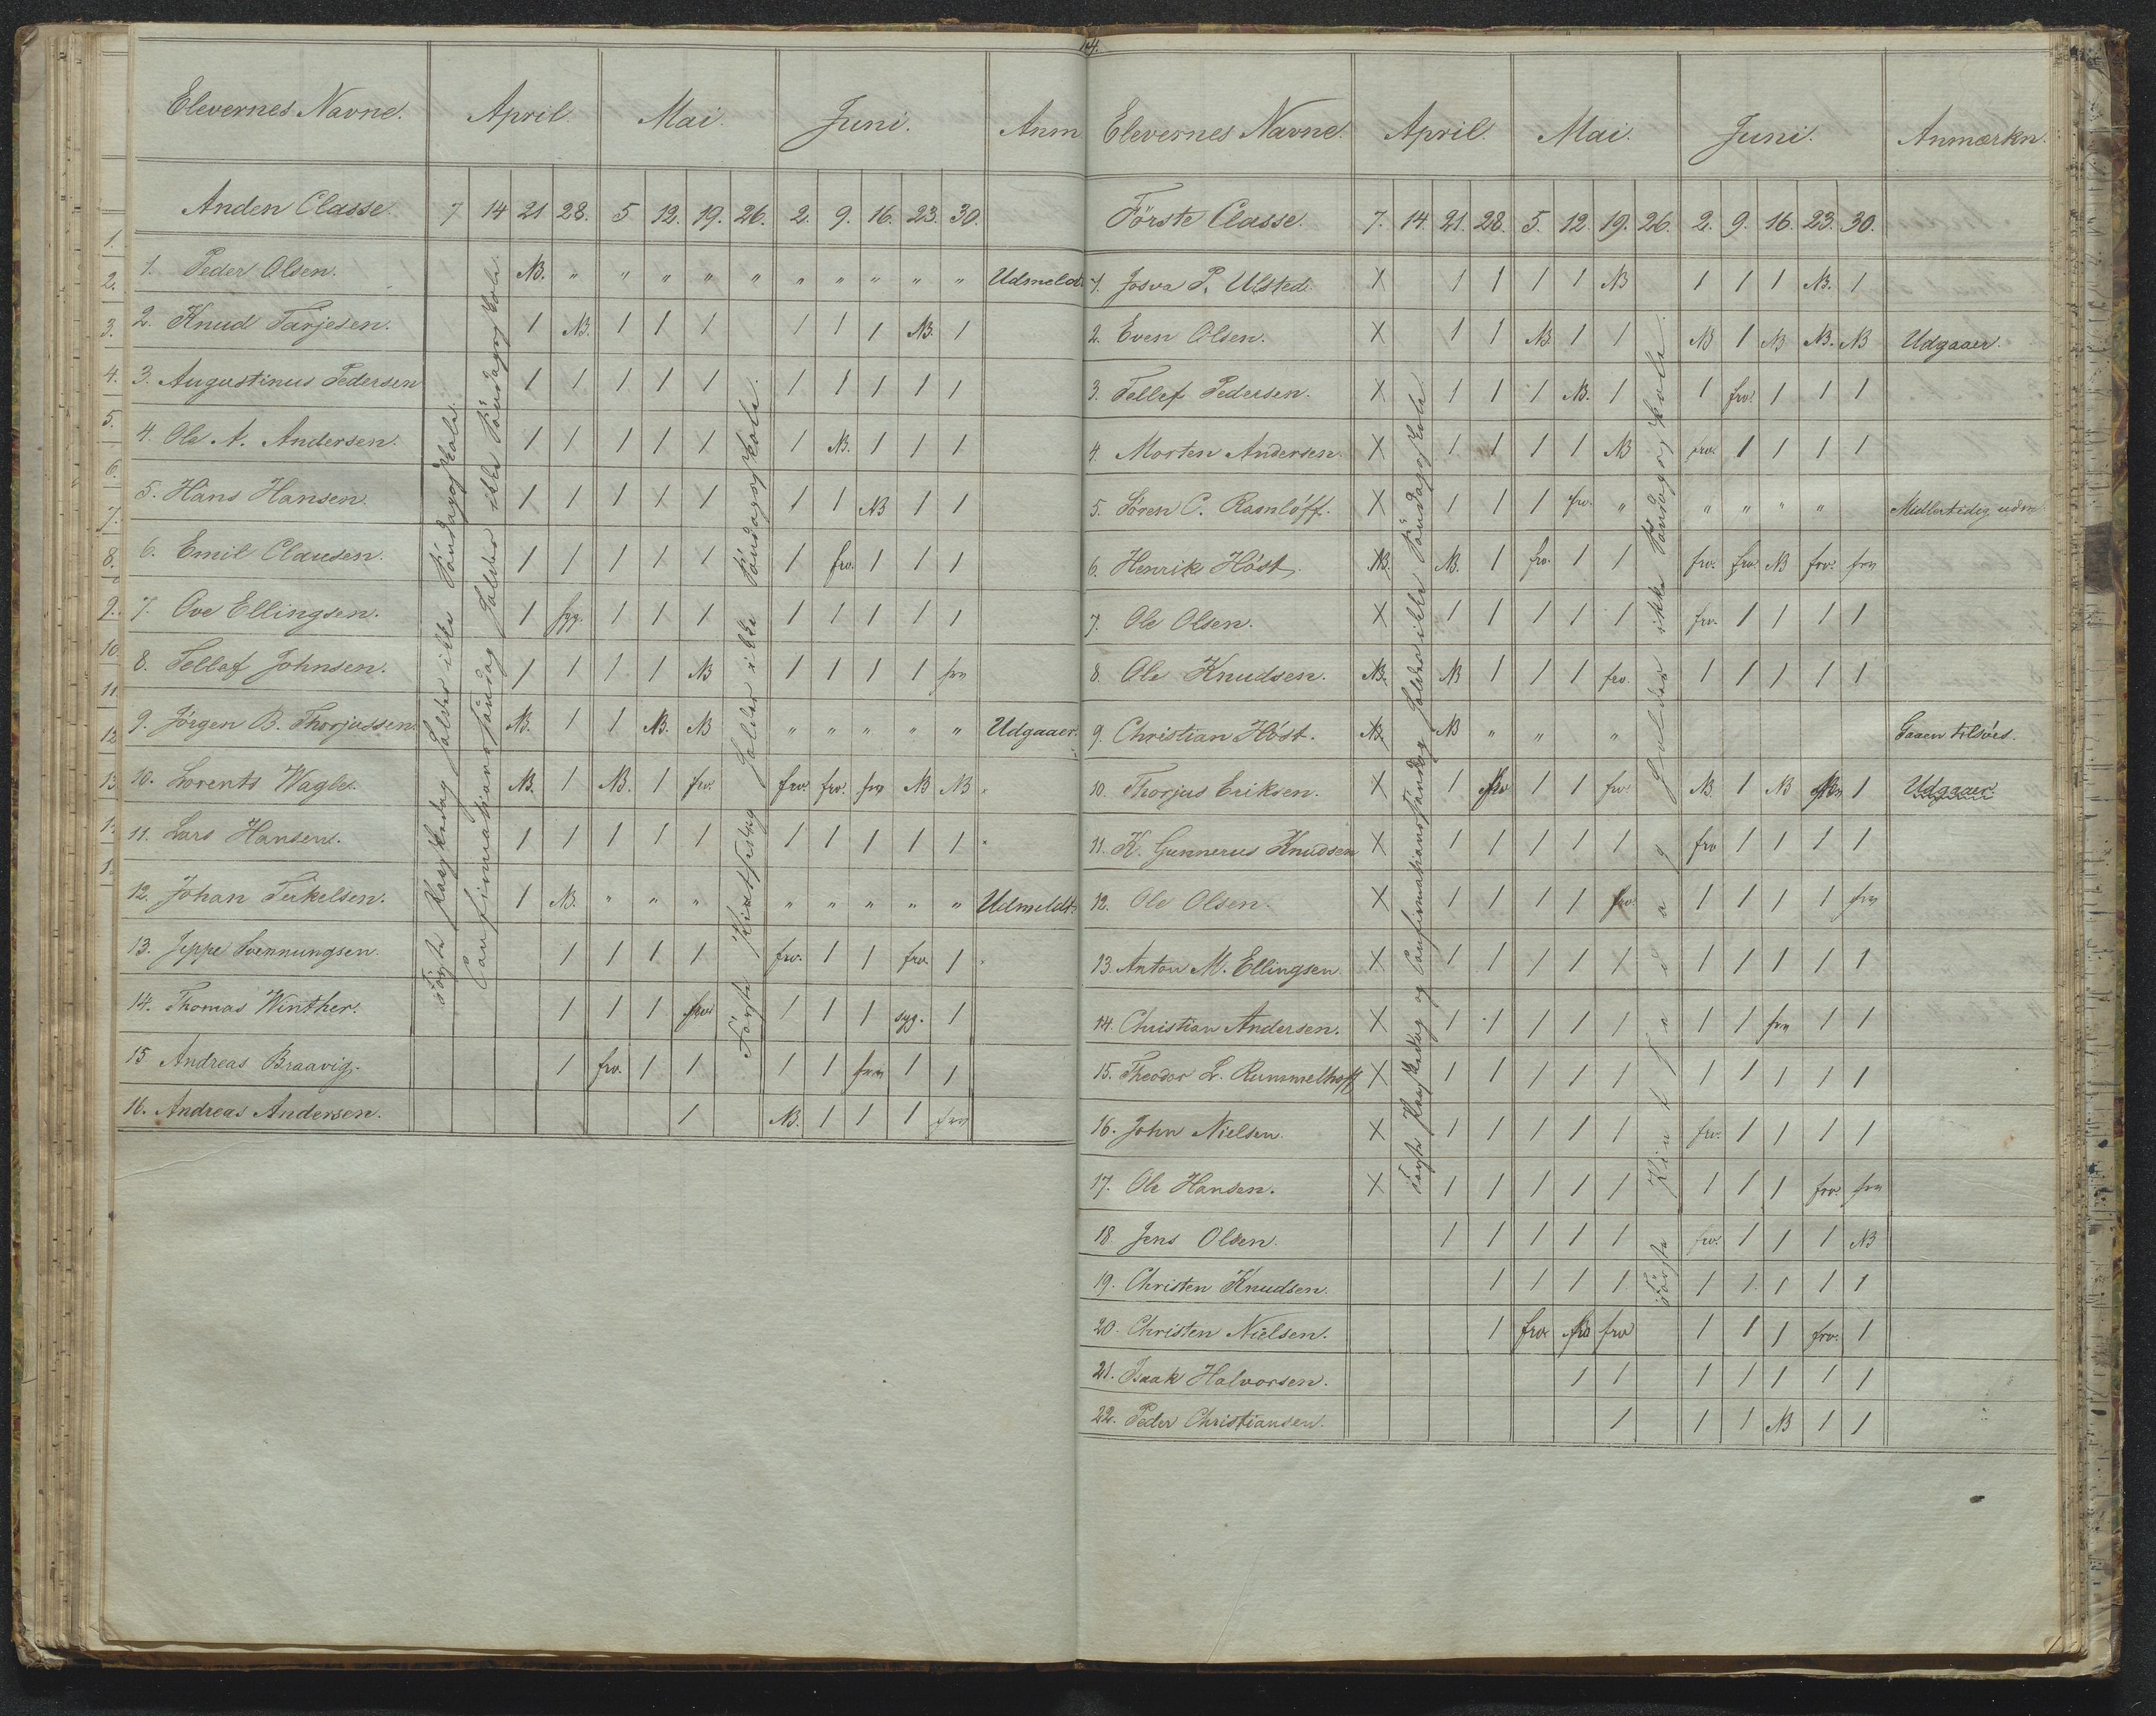 14.
Elevernes Navne. April Mai. Juni. Anm
Anden Classe. 7 14 21 28. 5 12. 19. 26. 2. 9. 16. 23. 30.
1. Peder Olsen. NB. " " " " " " " " " " Udmeldt
2. Knud Tarjesen. 1 NB. 1 1 1 1 1 1 NB. 1
3. Augustinus Pedersen 1 1 1 1 1 1 1 1 1 1
4. Ole A. Andersen. 1 1 1 1 1 1 NB. 1 1 1
5. Hans Hansen. 1 1 1 1 1 1 1 NB 1 1
6. Emil Clausen. 1 1 1 1 1 1 frv. 1 1 1
7. Ove Ellingsen. 1 syg. 1 1 1 1 1 1 1 1
8. Tellef Johnsen. 1 1 1 1 NB 1 1 1 1 frv
9. Jörgen B. Thorjussen. NB. 1 1 NB. NB " " " " " Udgaaer.
10. Lorents Wagle. NB. 1 NB. 1 frv. frv. frv. frv NB NB
11. Lars Hansen. 1 1 1 1 1 1 1 1 1 1
12. Johan Terkelsen. 1 NB. " " " " " " " " Udmeldt.
13. Jeppe Svennungsen. 1 1 1 1 frv. 1 1 frv. 1
14. Thomas Winther. 1 1 1 frv. 1 1 1 syg. 1
15 Andreas Braavig. 1 frv. 1 1 1 1 frv 1 1
16. Andreas Andersen. 1 NB. 1 1 1 frv
Første Paaskedag holdes ikke Söndagsskole.
Confirmationssöndag holdes ikke Söndagsskole.
Første Pintsedag holdes ikke Söndagsskole.
Elevernes Navne. April. Mai. Juni. Anmærkn.
Förste Classe. 7. 14. 21. 28. 5. 12. 19. 26. 2. 9. 16. 23. 30.
1. Josva P. Ulsted. X 1 1 1 1 NB 1 1 1 NB. 1
2. Even Olsen. X 1 1 NB 1 1 NB 1 NB NB. NB Udgaaer.
3. Tellef Pedersen. X 1 1 1 NB. 1 1 frv. 1 1 1
4. Morten Andersen. X 1 1 1 1 NB frv. 1 1 1 1
5. Sören C. Ramlöff. X 1 1 1 frv. " " " " " Midlertidig udm.
6. Henrik Höst. NB. NB. 1 frv. 1 1 frv. frv. NB frv. frv
7. Ole Olsen. X 1 1 1 1 1 frv. 1 1 1 1
8. Ole Knudsen. NB. NB 1 1 1 frv. 1 1 1 1 1
9. Christian Höst. NB. NB " " " Gaaen tilsöes.
10. Thorjus Eriksen. X 1 frv 1 1 frv. NB. 1 NB 1 Udgaaer.
11. K. Gunnerus Knudsen X 1 1 1 1 1 frv 1 1 1 1
12. Ole Olsen. X 1 1 1 1 frv. 1 1 1 1 frv
13. Anton M. Ellingsen. X 1 1 1 1 1 1 1 1 1 1
14. Christian Andersen. X 1 1 1 1 1 1 1 frv 1 1
15. Theodor L. Rummelhoff X 1 1 1 1 1 1 1 1 1 1
16. John Nielsen. X 1 1 1 1 1 frv. 1 1 1 1
17. Ole Hansen. X 1 1 1 1 1 1 1 1 frv. frv
18. Jens Olsen. 1 1 1 1 1 frv. 1 1 1 NB
19. Christen Knudsen. 1 1 1 1 1 1 1 1 1
20. Christen Nielsen. 1 frv. frv frv 1 1 1 frv. 1
21. Isaak Halvorsen. 1 1 1 1 1 1 1
22. Peder Christiansen. 1 1 1 NB 1 1
Første Paaskedag og Confirmationssöndag holdes ikke Söndagsskole
Første Pintsedag holdes ikke Söndagsskole.